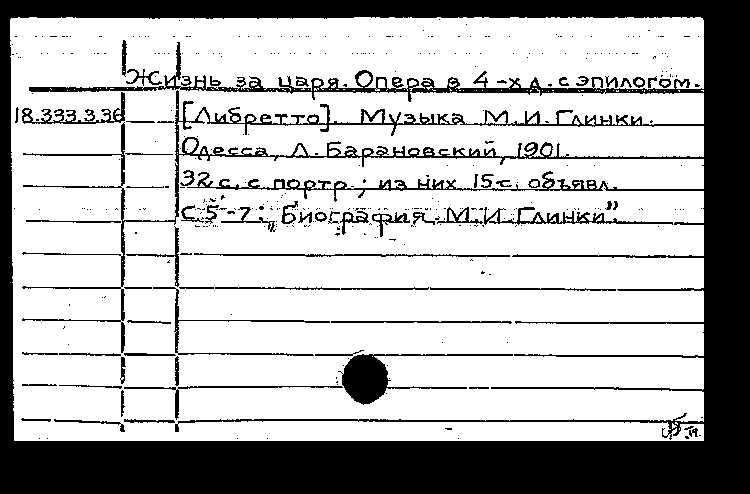 Жизнь за царя. Опера в 4-х д. с эпилогом.
18.333.3.36 [Либретто]. Музыка М.И. Глинки.
Одесса, Л. Барановский, 1901.
32 с. с портр.; из них 15 с. объявл.
С 5-7: „Биография М.И. Глинки".